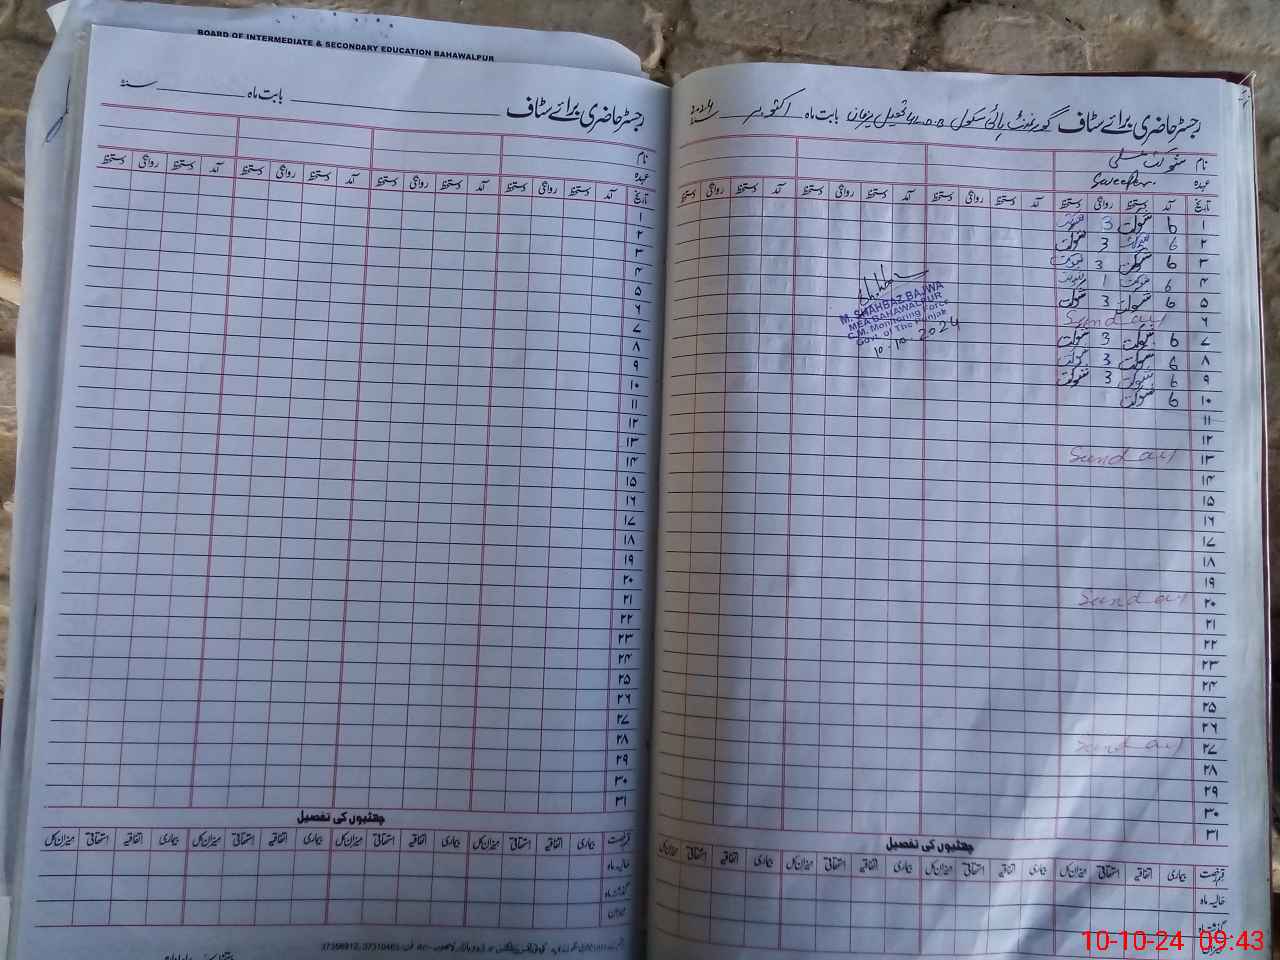 BOARD OF INTERMEDIATE & SECONDARY EDUCATION BAHAWALPUR
رجسٹر حاضری برائے سٹاف بابت ماہ سنہ
نام
عہدہ
تاریخ آمد دستخط روانگی دستخط آمد دستخط روانگی دستخط آمد دستخط روانگی دستخط آمد دستخط روانگی دستخط
۱
۲
۳
۴
۵
۶
۷
۸
۹
۱۰
۱۱
۱۲
۱۳
۱۴
۱۵
۱۶
۱۷
۱۸
۱۹
۲۰
۲۱
۲۲
۲۳
۲۴
۲۵
۲۶
۲۷
۲۸
۲۹
۳۰
۳۱
چھٹیوں کی تفصیل
قسم رخصت بیماری اتفاقیہ استحقاقی میزان کل بیماری اتفاقیہ استحقاقی میزان کل بیماری اتفاقیہ استحقاقی میزان کل بیماری اتفاقیہ استحقاقی میزان کل
حالیہ ماہ
گذشتہ ماہ
میزان
رجسٹر حاضری برائے سٹاف گورنمنٹ ہائی سکول تحصیل یزمان بابت ماہ اکتوبر سنہ ۲۰۲۴
نام شوکت مسیح
عہدہ Sweeper.
تاریخ آمد دستخط روانگی دستخط آمد دستخط روانگی دستخط آمد دستخط روانگی دستخط آمد دستخط روانگی دستخط
۱ 6 شوکت 3 شوکت
۲ 6 شوکت 3 شوکت
۳ 6 شوکت 3 شوکت
۴ 6 شوکت 1 شوکت
۵ 6 شوکت 3 شوکت
۶ Sunday
۷ 6 شوکت 3 شوکت
۸ 6 شوکت 3 شوکت
۹ 6 شوکت 3 شوکت
۱۰ 6 شوکت
۱۱
۱۲
۱۳ Sunday
۱۴
۱۵
۱۶
۱۷
۱۸
۱۹
۲۰ Sunday
۲۱
۲۲
۲۳
۲۴
۲۵
۲۶
۲۷ Sunday
۲۸
۲۹
۳۰
۳۱
M. SHAHBAZ BAJWA
MEA BAHAWALPUR
C.M. Monitoring Force
Govt. of The Punjab
10.10.2024
چھٹیوں کی تفصیل
قسم رخصت بیماری اتفاقیہ استحقاقی میزان کل بیماری اتفاقیہ استحقاقی میزان کل بیماری اتفاقیہ استحقاقی میزان کل بیماری اتفاقیہ استحقاقی میزان کل
حالیہ ماہ
گذشتہ ماہ
میزان
10-10-24 09:43